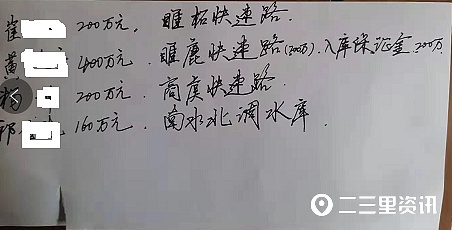 崔 200万元. 睢柘快速路.
黄 400万元. 睢鹿快速路(200万). 入库保证金 200万
杨 200万元. 商虞快速路.
郭 160万元. 南水北调水库.
二三里资讯